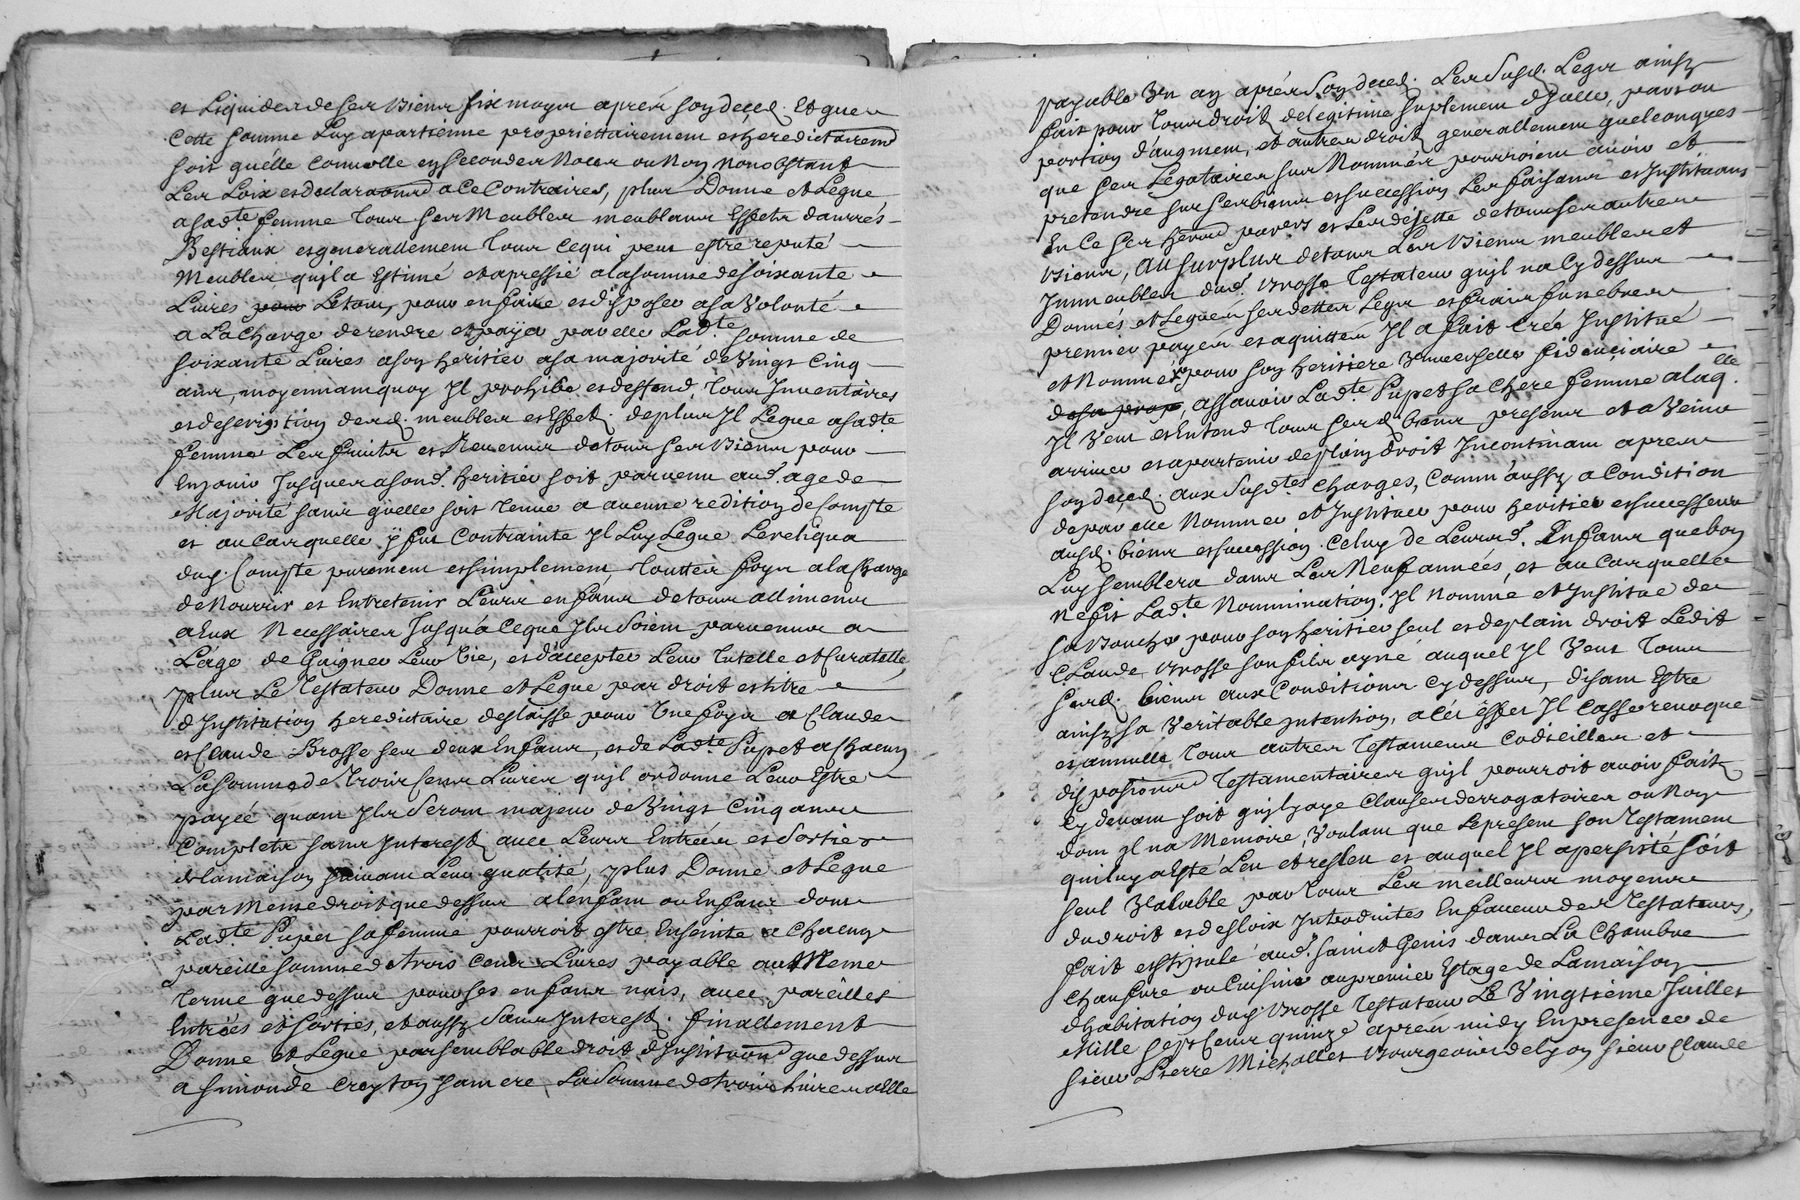 et Liquides de ses Biens six moys aprés son deced. Et que
Cette somme Luy apartienne propriettairement et heredictairemt
soit quelle Conuolle en secondes Noces ou Non Nonobstant
Les Loix et declaraôns a Ce Contraires, plus Donne et Legue
a sadte femme Tous ses Meubles meublans Effects danrrés
Bestiaux et generallement Tous ce qui peut estre reputé
Meubles quil a Estimé et apressié a la somme de soixante
Liures pour Le tout, pour en faire et disposer a sa Volonté
a La Charge de rendre et payer par elle Ladte somme de
soixante Liures a son heritier a sa majorité de Vingt Cinq
ans, moyennant quoy Il prohibe et deffend Tous Inuentaires
et description desd. meubles et Effect. de plus Il Legue a sadte
femme Les fruits et Reuenus de tous ses Biens pour
En jouir Jusques a sond. heritier soit paruenu aud. age de
Majorité sans quelle soit Tenue a aucune reddition de Compte
et au Cas quelle y fut Contrainte Il Luy Legue Le reliqua
dud. Compte purement et simplement Touttes foys a la Charge
de Nourrir et Entretenir Leurs enfans de tous allimens
a Eux Necessaires Jusqu'a ce que Ils soient paruenus a
L'age de Gaigner Leur Vie, et d'accepter Leur Tutelle et Curatelle,
plus Le Testateur Donne et Legue par droit et titre
d'Institution heredictaire deslaisse pour Une foys a Claude
et Claude Brosse ses deux Enfans, et de Ladte Pupet a Chacun
La somme de Trois Cens Liures quil ordonne Leur Estre
payée quant Ils Seront majeurs de Vingt Cinq ans
Complets sans Interest auec Leurs Entrées et Sorties
de la maison suiuant Leur qualité, plus Donne et Legue
par Meme droit que dessus a lenfant ou Enfans dont
Ladte Pupet sa femme pourroit estre Enseinte a Chacun
pareille somme de trois Cens Liures payable au Meme
terme que dessus pour ses enfans nais, auec pareilles
Entrées et sorties, et aussy Sans Interest. finallement
Donne et Legue par semblable droit d'Institution que dessus
a simonde Croyton sa mere, La Somme de trois Liures a Elle
payable Un an aprés son deced. Les susd. Legs ainsy
fait pour Tous droit de legitime suplement dicelle, part ou
portion d'augment, et autres droit generallement quelconques
que ses Legataires sus Nommés pourroient auoir et
pretendre sur ses biens et succession Les faisant et Instituans
En Ce ses herrs parers et Les dejette de tous ses autres
Biens, Au surplus de tous Les Biens meubles et
Immeubles dud. Brosse Testateur quil na Cy dessus
Donnés et Legués ses dettes Legs et fraix funebres
premier payés et aquittés Il a fait Créé Institué
et Nommé pour son heritiere Vniuerselle fideuciaire
de sa prop, assauoir Ladte Pupet sa Chere femme a laqlle
Il Veut et Entend Tous sesd. biens presens et a Venir
arriuer et apartenir de plain droit Incontinant apres
son deced. aux susdtes Charges, Comm'aussy a Condition
de par elle Nommer et Instituer pour heritier et successeur
ausd. biens et succession. Celuy de Leursd. Enfans que bon
Luy semblera dans Les Neuf années, et au Cas quelle
ne fit Ladte Nommination. Il Nomme et Institue de
sa bouche pour son heritier seul et de plain droit Ledit
Claude Brosse son fils ayné auquel Il Veut Tous
sesd. biens aux Conditions Cy dessus, disant Estre
ainsy sa Veritable intention, a cés effet Il Casse reuoque
et annulle Tous autres Testamens Codicilles et
dispositions Testamentaires quil pourroit auoir fait
Cy deuant soit quil y aye Clauses derrogatoires ou Non
dont il na Memoire, Voulant que Le present son Testament
qui luy a Esté Leu et relleu et auquel Il a persisté soit
seul Valable par Tous Les meilleurs moyens
du droit et des loix Introduites En faueur des Testateurs,
fait et stipulé aud. Sainct Genis dans La Chambre
Chaufure ou Cuisine au premier Estage de La maison
d'habitation dud. Brosse Testateur Le Vingtieme Juillet
Mille sept Cent quinze aprés midy En presence de
sieur Pierre Michallet Bourgeois de Lyon sieur Claude